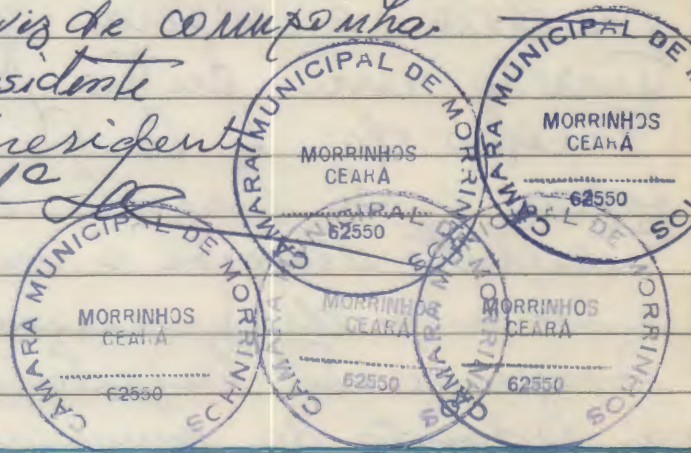 viz de
sidente
residente
1º
CÂMARA MUNICIPAL DE MORRINHOS
MORRINHOS
CEARÁ
62550
CÂMARA MUNICIPAL DE M
MORRINHOS
CEARÁ
62550
OS
CÂMARA MUNICIPAL DE MORRINHOS
MORRINHOS
CEARÁ
62550
CÂMARA MUNICIPAL DE MORRINHOS
MORRINHOS
CEARÁ
62550
CÂMARA MUNICIPAL DE MORRINHOS
MORRINHOS
CEARÁ
62550